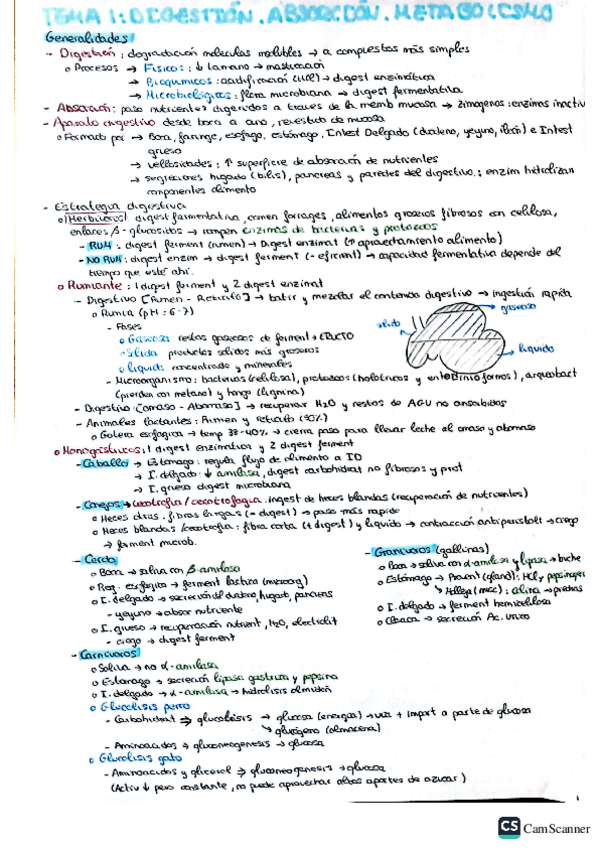 TEMA 1: DIGESTIÓN, ABSORCIÓN, METABOLISMO
Generalidades
- Digestión: degradación moléculas inolubles → a compuestos más simples
o Procesos → Físicos: ↓ tamaño → masticación
→ Bioquímicos: acidificación (HCl) → digest enzimática
→ Microbiológicos: flora microbiana → digest fermentativa
- Absorción: paso nutrientes digeridos a traves de la memb mucosa → zimogenos: enzimas inactiv
- Aparato digestivo desde boca a ano, revestido de mucosa
o Formado por → Boca, faringe, esófago, estómago, Intest Delgado (duodeno, yeyuno, íleon) e Intest
grueso
→ vellosidades: ↑ superficie de absorción de nutrientes
→ segregaciones hígado (bilis), páncreas y paredes del digestivo: enzim hidrolizan
componentes alimento
- Estrategia digestiva
o Herbívoros: digest fermentativa, comen forrages, alimentos groseros fibrosos con celulosa,
enlaces β-glucosídos → rompen enzimas de bacterias y protozoos
- RUM: digest ferment (rumen) → Digest enzimat (↑ aprovechamiento alimento)
- NO RUM: digest enzim → digest ferment (- eficient) → capacidad fermentativa depende del
tiempo que esté ahí.
o Rumiante: 1 digest ferment y 2 digest enzimat
- Digestivo [Rumen - Retículo] → batir y mezclar el contenido digestivo → ingestión rápida
o Rumia (pH: 6-7)
- Fases
o Gaseosa: restos gaseosos de ferment → ERUCTO
o Sólida: productos sólidos más groseros
o líquida: concentrado y minerales
gaseoso
sólido
líquido
- Microorganismo: bacterias (celulosa), protozoos (holotricos y entodiniomorfos), arqueobact
(pierden con metano) y hongo (lignina)
- Digestivo [Omaso - Abomaso] → recuperar H2O y restos de AGV no absorbidos
- Animales lactantes: Rumen y retículo (30%)
o Gotera esofágica → temp 38-40% → cierra paso para llevar leche al omaso y abomaso
o Monogástricos: 1 digest enzimática y 2 digest ferment
- Caballo → Estómago: regula flujo de alimento a ID
→ I. delgado: ↓ amilasa, digest carbohidrat no fibrosos y prot
→ I. grueso digest microbiana
- Conejos → cecotrofia / cecotrofagia: ingest de heces blandas (recuperación de nutrientes)
o Heces duras: fibras largas (- digest) → paso más rápido
o Heces blandas / cecotrofia: fibra corta (+ digest) y líquido → contracción antiperistált → ciego
→ ferment microb.
- Cerdo
o Boca → saliva con β-amilasa
o Reg. esofágica → ferment láctica (microorg)
o I. delgado → secreción del duodeno, hígado, páncreas
- yeyuno → absor nutriente
o I. grueso → recuperación nutrient, H2O, electrolit
- ciego → digest ferment
- Granívoros (gallinas)
o Boca → saliva con α-amilasa y lipasa → buche
o Estómago → Provent (gland): HCl y pepsinogen
↳ Molleja (mec): → piedras
o I. delgado → ferment hemicelulosa
o Cloaca → secreción Ac. úrico
- Carnívoros
o Saliva → no α-amilasa
o Estómago → secreción lipasa gástrica y pepsina
o I. delgado → α-amilasa → hidrólisis almidón
o Glucólisis perro
- Carbohidrat → glucólisis → glucosa (energía) → + import a parte de glucosa
↳ glucógeno (almacena)
- Aminoácidos → gluconeogenesis → glucosa
o Glucólisis gato
- Aminoácidos y glicerol → gluconeogenesis → glucosa
(Activ ↓ pero constante, no puede aprovechar altos aportes de azúcar)
1
CS CamScanner